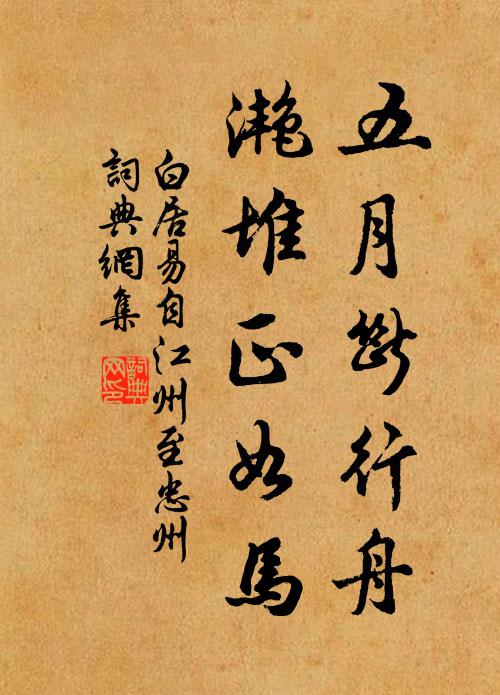 五月斷行舟
灩堆正如馬
白居易自江州至忠州
詞典網集
詞典網印